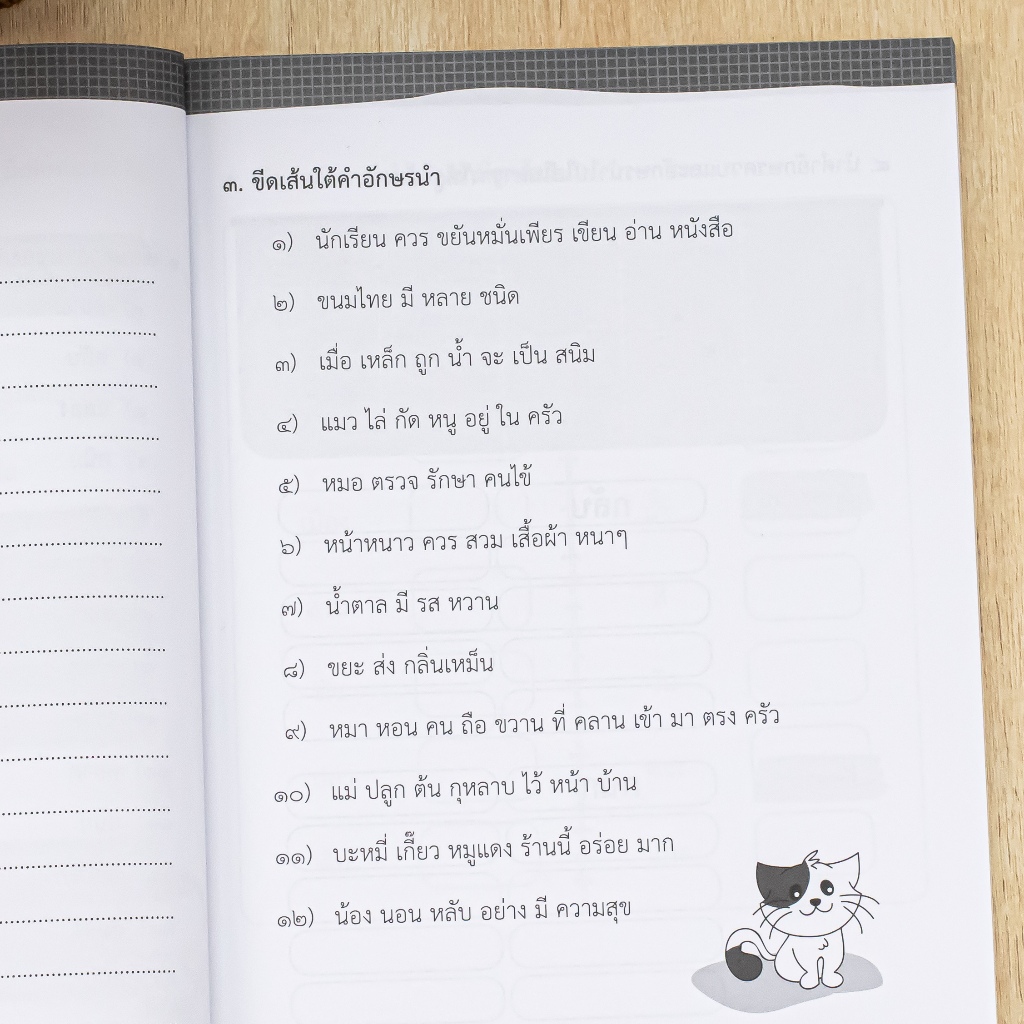 ๓. ขีดเส้นใต้คำอักษรนำ
๑) นักเรียน ควร ขยันหมั่นเพียร เขียน อ่าน หนังสือ
๒) ขนมไทย มี หลาย ชนิด
๓) เมื่อ เหล็ก ถูก น้ำ จะ เป็น สนิม
๔) แมว ไล่ กัด หนู อยู่ ใน ครัว
๕) หมอ ตรวจ รักษา คนไข้
๖) หน้าหนาว ควร สวม เสื้อผ้า หนาๆ
๗) น้ำตาล มี รส หวาน
๘) ขยะ ส่ง กลิ่นเหม็น
๙) หมา หอน คน ถือ ขวาน ที่ คลาน เข้า มา ตรง ครัว
๑๐) แม่ ปลูก ต้น กุหลาบ ไว้ หน้า บ้าน
๑๑) บะหมี่ เกี๊ยว หมูแดง ร้านนี้ อร่อย มาก
๑๒) น้อง นอน หลับ อย่าง มี ความสุข